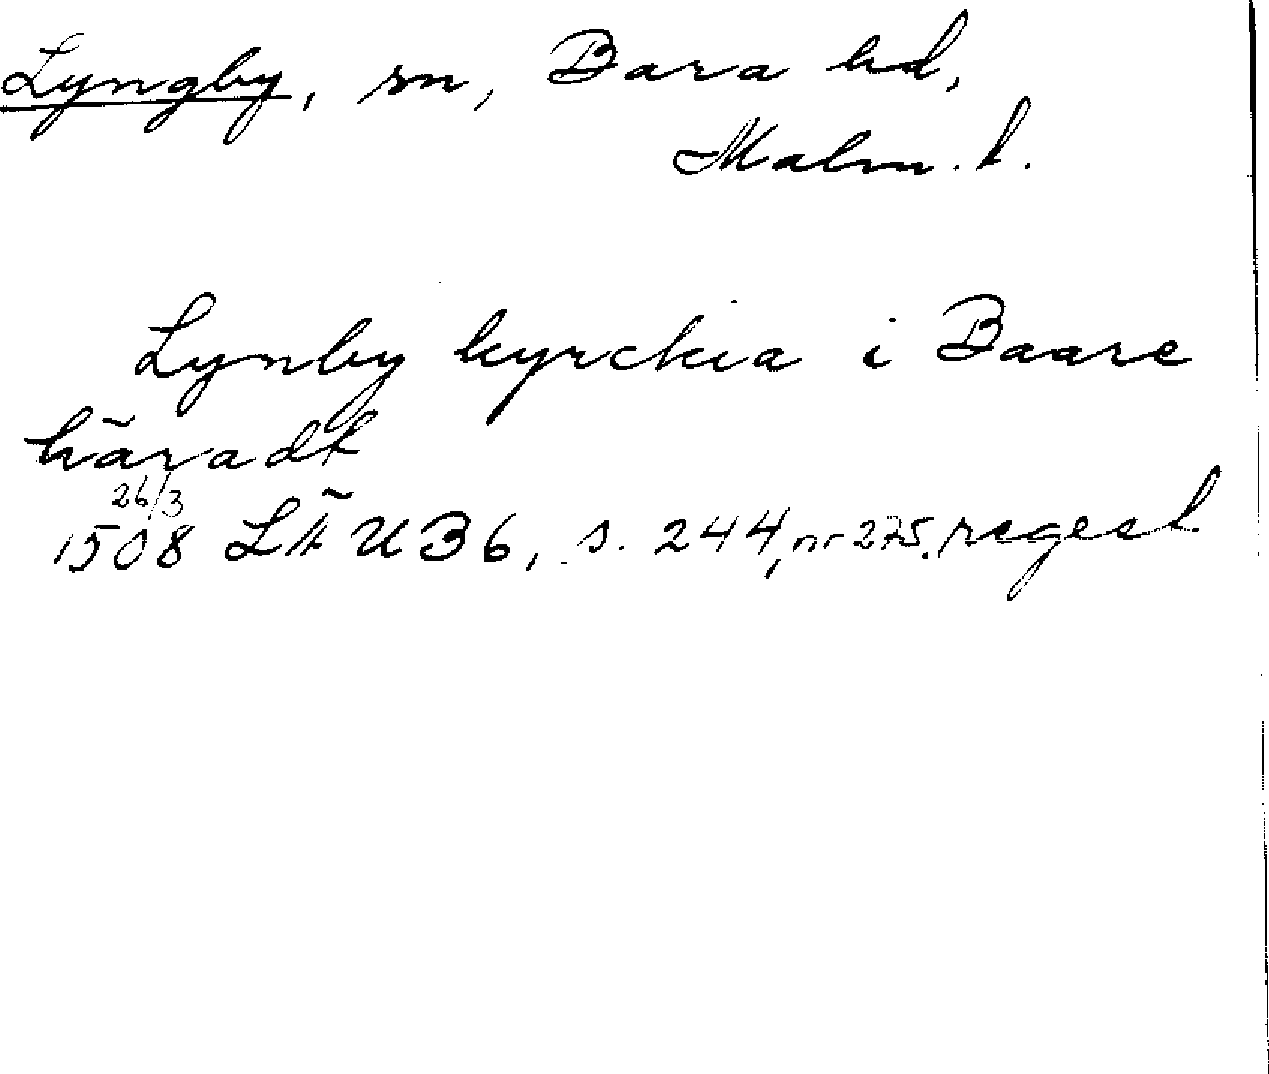 Lyngby, sn, Bara hd,
Malm. l.
Lynby kyrckia i Baare
häradt
26/3
1508 LÄUB 6, s. 244, nr 275, regest